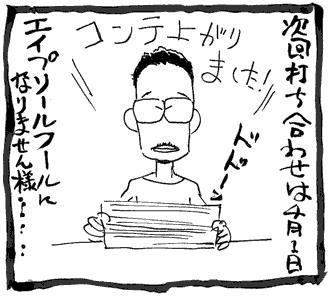 次回打ち合わせは4月1日
コンテ上がり
ました!
ドドーン
エイプリールフールに
なりません様・・・・